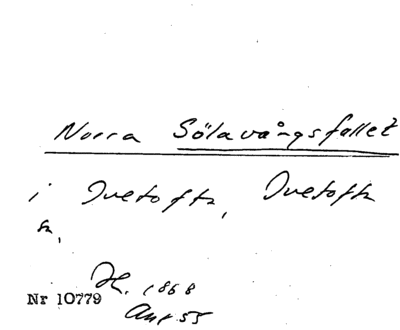 Norra Sölavångsfallet
i Ivetofta, Ivetofta
sn,
H. 1868
Nr 10779
Ant 55